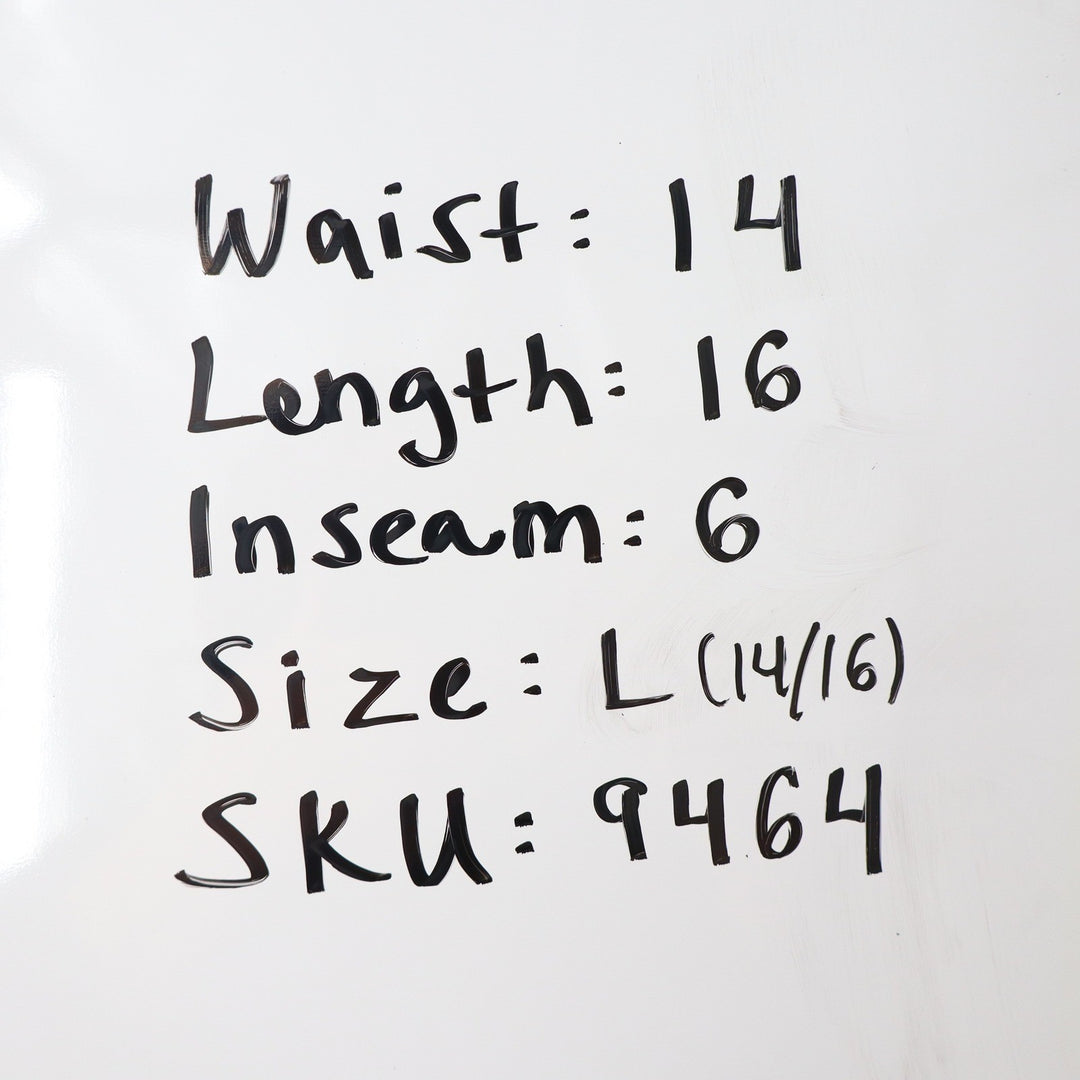 Waist: 14
Length: 16
Inseam: 6
Size: L (14/16)
SKU: 9464